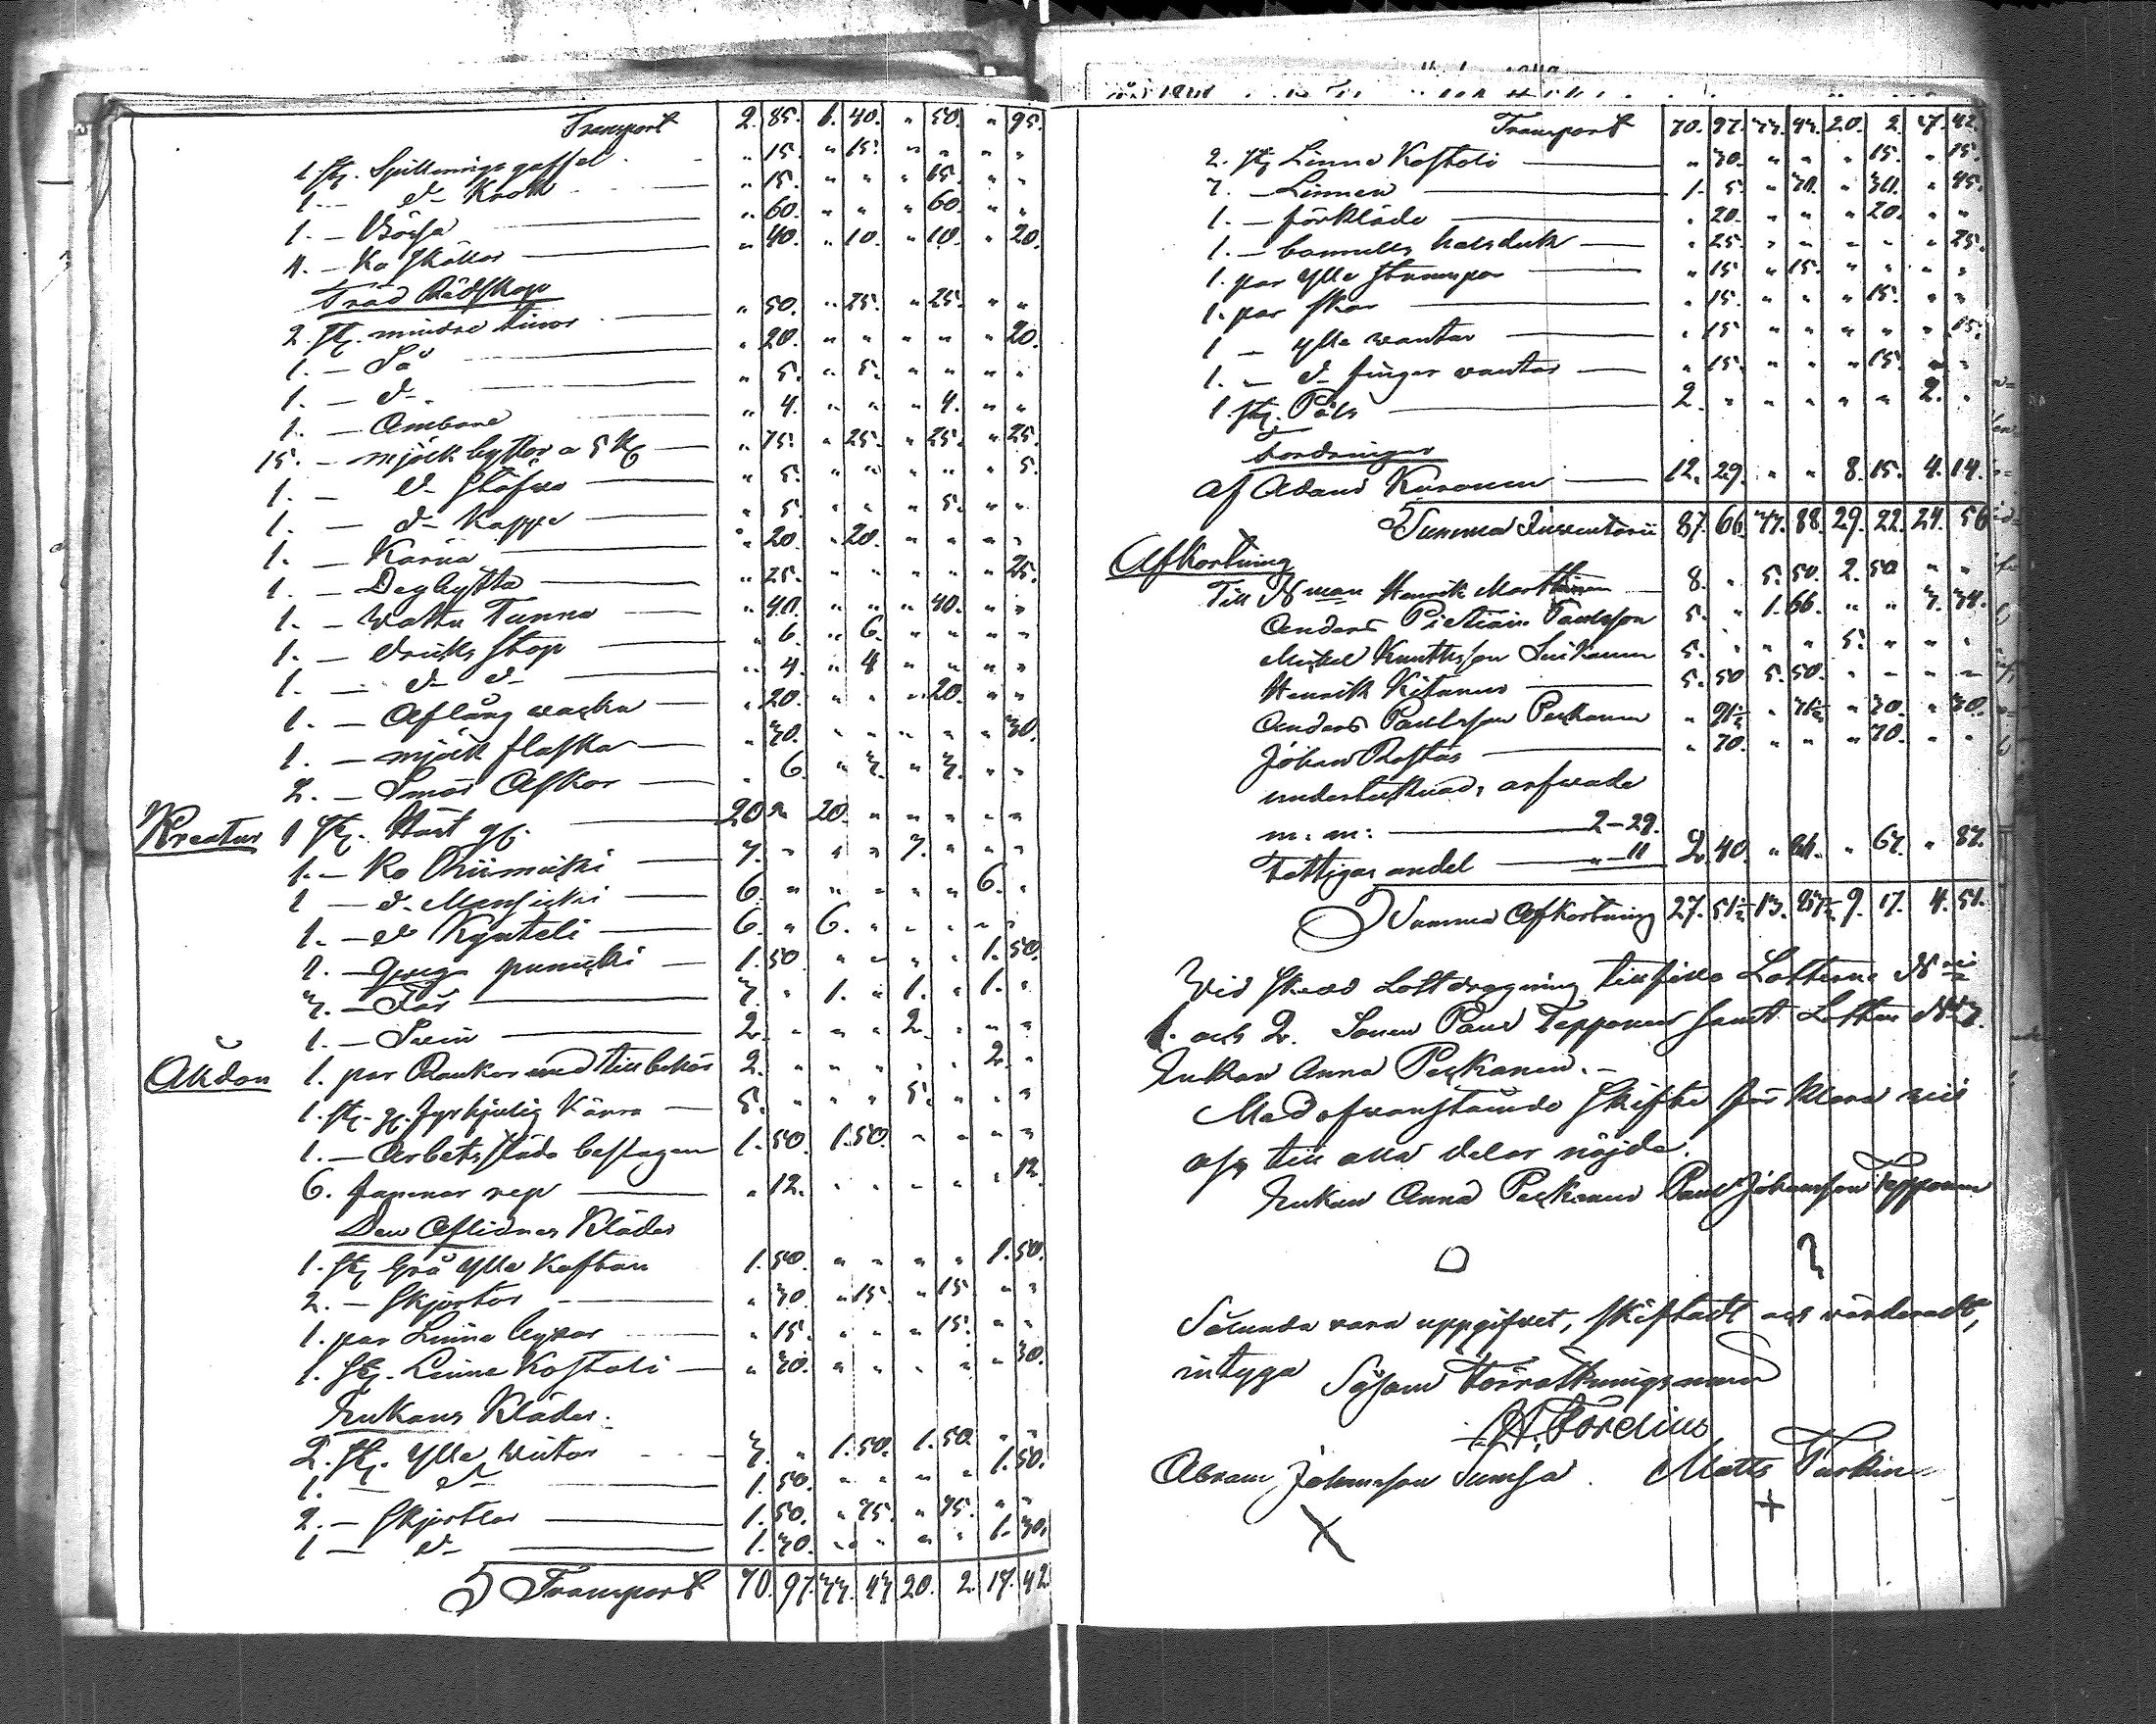 Transport 2. 85. 6. 40. " 50. " 95.
1. st. Spillnings gaffel " 15. " 15. " " " "
1. — d:o Krok " 15. " " " 15. " "
1. — Bössa " 60. " " " 60. " "
4. — Ko skällor " 40. " 10. " 10. " 20.
Träd Rädskap
2. st. mindre tinor " 50. " 25. " 25. " "
1. — Så " 20. " " " " " 20.
1. — d:o " 5. " 5. " " " "
1. — Ambare " 4. " " " 4. " "
15. — mjölk byttor a 5 K " 75. " 25. " 25. " 25.
1. — d:o stäfva " 5. " " " " " 5.
1. — d:o Kappe " 5. " " " 5. " "
1. — Kärna " 20. " 20. " " " "
1. — Degbytta " 25. " " " " " 25.
1. — Vattu Tunna " 40. " " " 40. " "
1. — dricks stop " 6. " 6. " " " "
1. — d:o d:o " 4. " 4 " " " "
1. — Aflång vacka " 20. " " " 20. " "
1. — mjölk flaska " 30. " " " " " 30.
2. — Smör Askar " 6. " 3. " 3. " "
Kreatur 1 st. Häst gl. 20 " 20. " " " " "
1. — Ko Riimikki 7. " " " 7. " " "
1 — d:o Mansikki 6. " " " " " 6. "
1. — d:o Kynteli 6. " 6. " " " " "
1. — Qviga punikki 1. 50 " " " " 1. 50.
3. — Får 3. " 1. " 1. " 1. "
1. — Svin 2. " " " 2. " " "
Åkdon 1. par Rankor med tillbehör 2. " " " " " 2. "
1. st. gl. fyrhjulig Kärra 5. " " " 5. " " "
1. — Arbets släda beslagen 1. 50. 1. 50. " " " "
6. famnar rep " 12. " " " " " 12.
Den Aflidnes Kläder
1. st. Grå Ylle Kaftan 1. 50. " " " " 1. 50.
2. — Skjortor " 30 " 15. " 15 " "
1. par Linne byxor " 15. " " " 15. " "
1. st. Linne Kostoli " 30. " " " " " 30.
Enkans Kläder.
2. st. Ylle Viitor 3. " 1. 50. 1. 50. " "
1. — d:o 1. 50. " " " " 1. 50.
2. — Skjortlar 1. 50. " 75. " 75. " "
1 — d:o 1. 30. " " " " 1. 30.
Transport 70. 97. 33. 43 20. 2. 17. 42
Transport 70. 97. 33. 43. 20. 2. 17. 42.
2. st. Linne Kostoli " 30. " " " 15. " 15.
7. — Linnen 1. 5. " 30. " 30. " 45.
1. — förkläde " 20. " " " 20. " "
1. — bomulls halsduk " 25. " " " " " 25.
1. par Ylle strumpor " 15 " 15. " " " "
1. par skor " 15. " " " 15. " "
1 — ylle vantar " 15 " " " " " 15.
1. — d:o finger vantar " 15. " " " 15. " "
1. st. Päls 2. " " " " " 2. "
Fordringar
Af Adam Kuronen 12. 29. " " 8. 15. 4. 14.
Summa Inventarii 87. 66. 33. 88. 29. 22. 24. 56
Afkortning
Till N:man Henrik Marttinen 8. " 5. 50. 2. 50 " "
Anders Pietiäin Paulsson 5. " 1. 66. " " 3. 34.
Mikel Knuttsson 5. " " " 5. " " "
Henrik Kitanen 5. 50 5. 50. " " " "
Anders Paulsson Peckanen
Johan Rostas " 70. " " " 70. " "
undertecknad, arfvode
m. m: 2—29.
Fattigas andel "—11 2. 40.
Summa Afkortning 27. 51½ 13. 83½ 9. 17. 4. 51.
Vid skedd Lottdragning tillföllo Lotterne N:ris
1. och 2. Sonen Paul Tepponen samt Lotten N:o 3.
Enkan Anna Peckanen.
Med ofvanstående skifte förklara vi
oss till alla delar nöjde.
Enkan Anna Peckanen Paul Johansson Tepponen
Sålunda vara uppgifvet, skiftadt och värderadt,
intyga Såsom Förrättningsman
Abram Johansson Sumsa. Matts Turkin